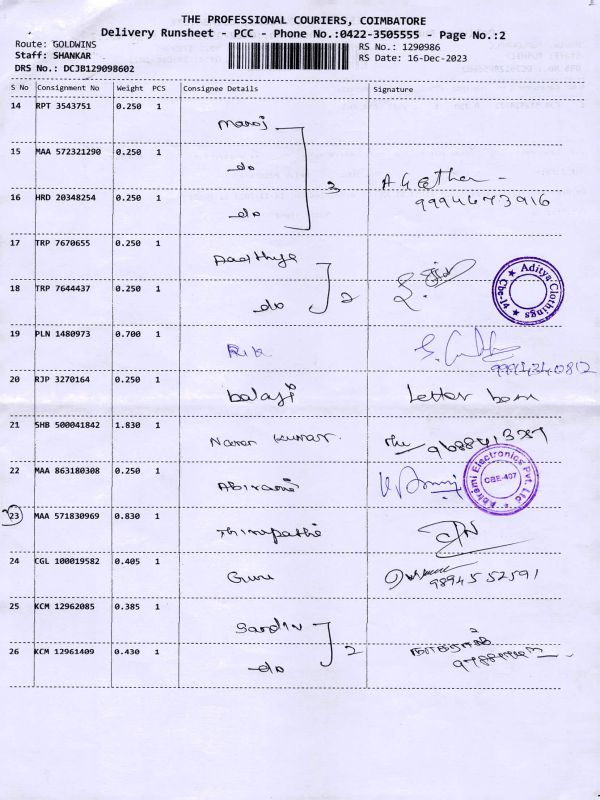 THE PROFESSIONAL COURIERS, COIMBATORE
Delivery Runsheet - PCC - Phone No.:0422-3505555 - Page No.:2
Route: GOLDWINS
Staff: SHANKAR
DRS No.: DCJB129098602
RS No.: 1290986
RS Date: 16-Dec-2023
S No Consignment No Weight PCS Consignee Details Signature
14 RPT 3543751 0.250 1 manoj
15 MAA 572321290 0.250 1 -do
3
16 HRD 20348254 0.250 1 -do
9994673916
17 TRP 7670655 0.250 1 Aadthya
18 TRP 7644437 0.250 1 -do 2
Aditya Clothings
Cbe-14
19 PLN 1480973 0.700 1
9994340812
20 RJP 3270164 0.250 1 balaji Letter box
21 SHB 500041842 1.830 1 Naren kumar.
22 MAA 863180308 0.250 1 Abirami
Abirami Electronics Pvt. Ltd
CBE-407
23 MAA 571830969 0.830 1 Thirupathi
24 CGL 100019582 0.405 1 Guru
9894552591
25 KCM 12962085 0.385 1
2
26 KCM 12961409 0.430 1 -do